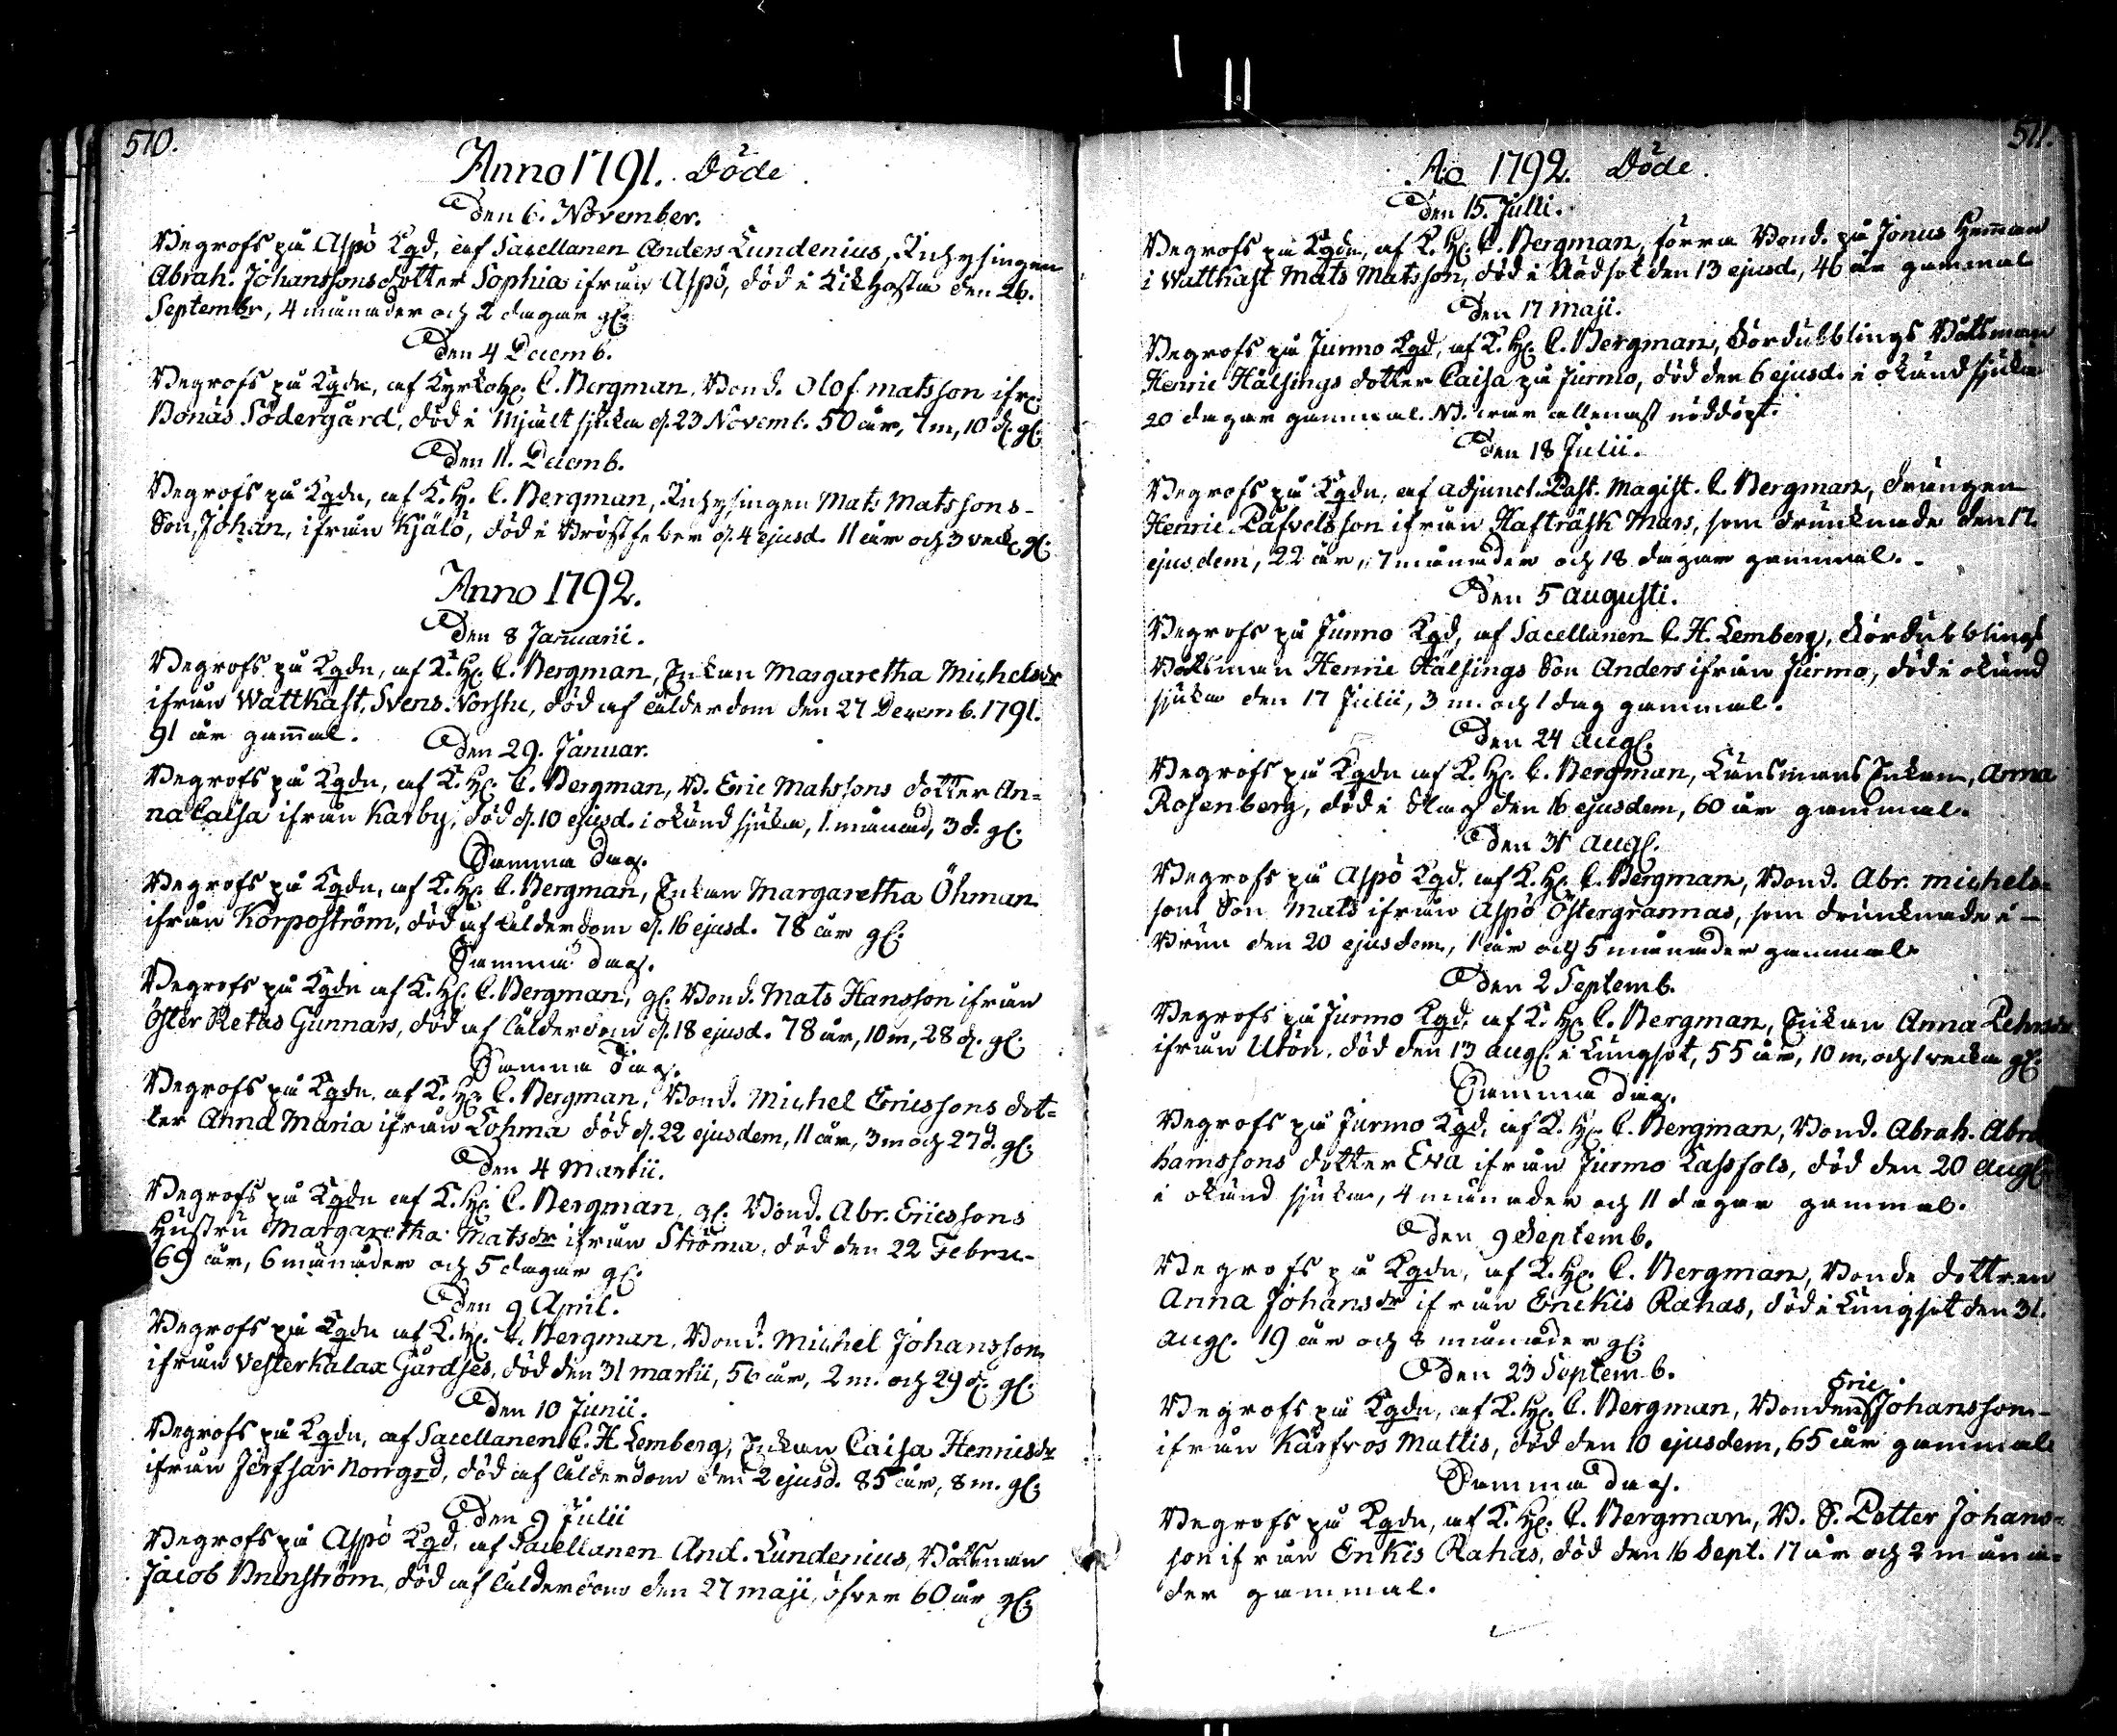 510.
Anno 1791. Döde.
Den 6. November.
Begrofs på Aspö Kgd, af Sacellanen Anders Lundenius, Inhysingen
Abrah. Johanssons dotter Sophia ifrån Aspö, död i Kikhosta den 26.
Septembr, 4 månader och 2 dagar gl.
Den 4 Decemb.
Begrofs på Kgdn, af Kyrkohr. C. Bergman, Bond. Olof Matsson ifr.
Bonäs Södergård, död i Mjältsjuka d. 23 Novemb. 50 år, 1 m, 10 d. gl.
Den 11. Decemb.
Begrofs på Kgdn, af K. H. C. Bergman, Inhysingen Mats Matssons-
Son, Johan, ifrån Kjälö, död i Bröstfeber d. 4 ejusd. 11 år och 3 veck. gl.
Anno 1792.
Den 8 Januarii.
Begrofs på Kgdn, af K. H. C. Bergman, Enkan Margaretha Michelsdr
ifrån Wattkast, Svens Norstu, död af ålderdom den 27 Decemb. 1791.
91 år gammal.
Den 29. Januar.
Begrofs på Kgdn, af K. H. C. Bergman, B. Eric Matssons dotter An=
na Caisa ifrån Karby, död d. 10 ejusd. i okänd sjuka, 1 månad, 3 d. gl.
Samma dag.
Begrofs på Kgdn, af K. H. C. Bergman, Enkan Margaretha Öhman
ifrån Korpoström, död af ålderdom d. 16 ejusd. 78 år gl.
Samma dag.
Begrofs på Kgdn af K. H. C. Bergman, gl. Bond. Mats Hansson ifrån
Öster Retas Gunnars, död af ålderdom d. 18 ejusd. 78 år, 10 m, 28 d. gl.
Samma dag.
Begrofs på Kgdn, af K. H. C. Bergman, Bond. Michel Ericssons dot=
ter Anna Maria ifrån Lohma död d. 22 ejusdem, 11 år, 3 m och 27 d. gl.
Den 4 Martii.
Begrofs på Kgdn af K. H. C. Bergman, gl. Bond. Abr. Ericssons
Hustru Margaretha Matsdr ifrån Ströma, död den 22 Febru-
69 år, 6 månader och 5 dagar gl.
Den 9 April.
Begrofs på Kgdn af K. H. C. Bergman, Bond. Michel Johansson
ifrån Vesterkalax Gårdses, död den 31 martii, 56 år, 2 m. och 29 d. gl.
Den 10 Junii.
Begrofs på Kgdn, af Sacellanen C. H. Lemberg, Enkan Caisa Henricsdr
ifrån Jerfsar Norrgrd, död af ålderdom den 2 ejusd. 85 år, 8 m. gl.
Den 9 Julii
Begrofs på Aspö Kgd, af Sacellanen And. Lundenius, Båtsman
Jacob Brunström, död af ålderdom den 27 maji, öfver 60 år gl.
511.
Ao 1792. Döde.
Den 15. Julii.
Begrofs på Kgdn, af K. H. C. Bergman, förra Bond. på Jonus Hemman
i Wattkast Mats Matsson, död i Rödsot den 13 ejusd, 46 år gammal
Den 17 Maji.
Begrofs på Jurmo Kgd, af K. H. C. Bergman, Fördubblings Båtsman
Henric Hälsings dotter Caisa på Jurmo, död den 6 ejusd. i okänd sjuka
20 dagar gammal. NB. war allenast nöddöpt.
Den 18 Julii.
Begrofs på Kgdn, af Adjunct. Past. Magist. C. Bergman, drängen
Henric Påfvelsson ifrån Hafträsk Mars, som drunknade den 17.
ejusdem, 22 år, 7 månader och 18 dagar gammal.
Den 5 Augusti.
Begrofs på Jurmo Kgd, af Sacellanen C. H. Lemberg, Fördubblings
Båtsman Henric Hälsings Son Anders ifrån Jurmo, död i okänd
sjuka den 17 Julii, 3 m. och 1 dag gammal.
Den 24 Aug.
Begrofs på Kgdn af K. H. C. Bergman, Länsmans Enkan, Anna
Rosenberg, död i Slag den 16 ejusdem, 60 år gammal.
Den 31 Aug.
Begrofs på Aspö Kgd. af K. H. C. Bergman, Bond. Abr. Michels=
sons Son Mats ifrån Aspö Östergrannas, som drunknade i
Brun den 20 ejusdem, 1 år och 5 månader gammal
Den 2 Septemb.
Begrofs på Jurmo Kgd, af K. H. C. Bergman, Enkan Anna
ifrån Utön, död den 13 Aug. i Lungsot, 55 år, 10 m, och 1 vecka gl.
Samma dag.
Begrofs på Jurmo Kgd, af K. H. C. Bergman, Bond. Abrah. Abra
hamssons dotter Eva ifrån Jurmo Kassfols, död den 20 Aug.
i okänd sjuka, 4 månader och 11 dagar gammal.
Den 9 Septemb.
Begrofs på Kgdn, af K. H. C. Bergman, Bonde dottren
Anna Johansdr ifrån Enckis Rahas, död i Lungsot den 31.
Aug. 19 år och 8 månader gl.
Den 23 Septemb.
Begrofs på Kgdn, af K. H. C. Bergman, Bonden Eric Johansson-
ifrån Kårfvos Mattis, död den 10 ejusdem, 65 år gammal
Samma dag.
Begrofs på Kgdn, af K. H. C. Bergman, B. S. Petter Johans=
son ifrån Enkis Rahas, död den 16 Sept. 17 år och 2 måna=
der gammal.